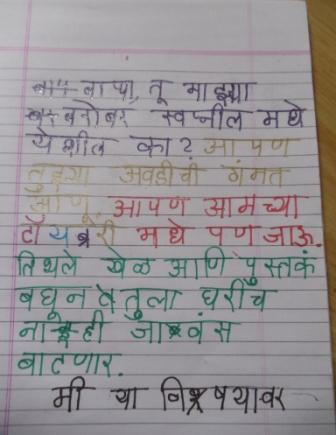 बाबा, तू माझ्या
बरोबर स्वप्नील मधे
येशील का? आपण
तुझ्या आवडीची गंमत
आणू. आपण आमच्या
टॉयब्रेरी मधे पण जाऊ.
तिथले खेळ आणि पुस्तकं
बघून वे तुला घरीच
नाही जावंस
बाटणार.
मी या विषयावर